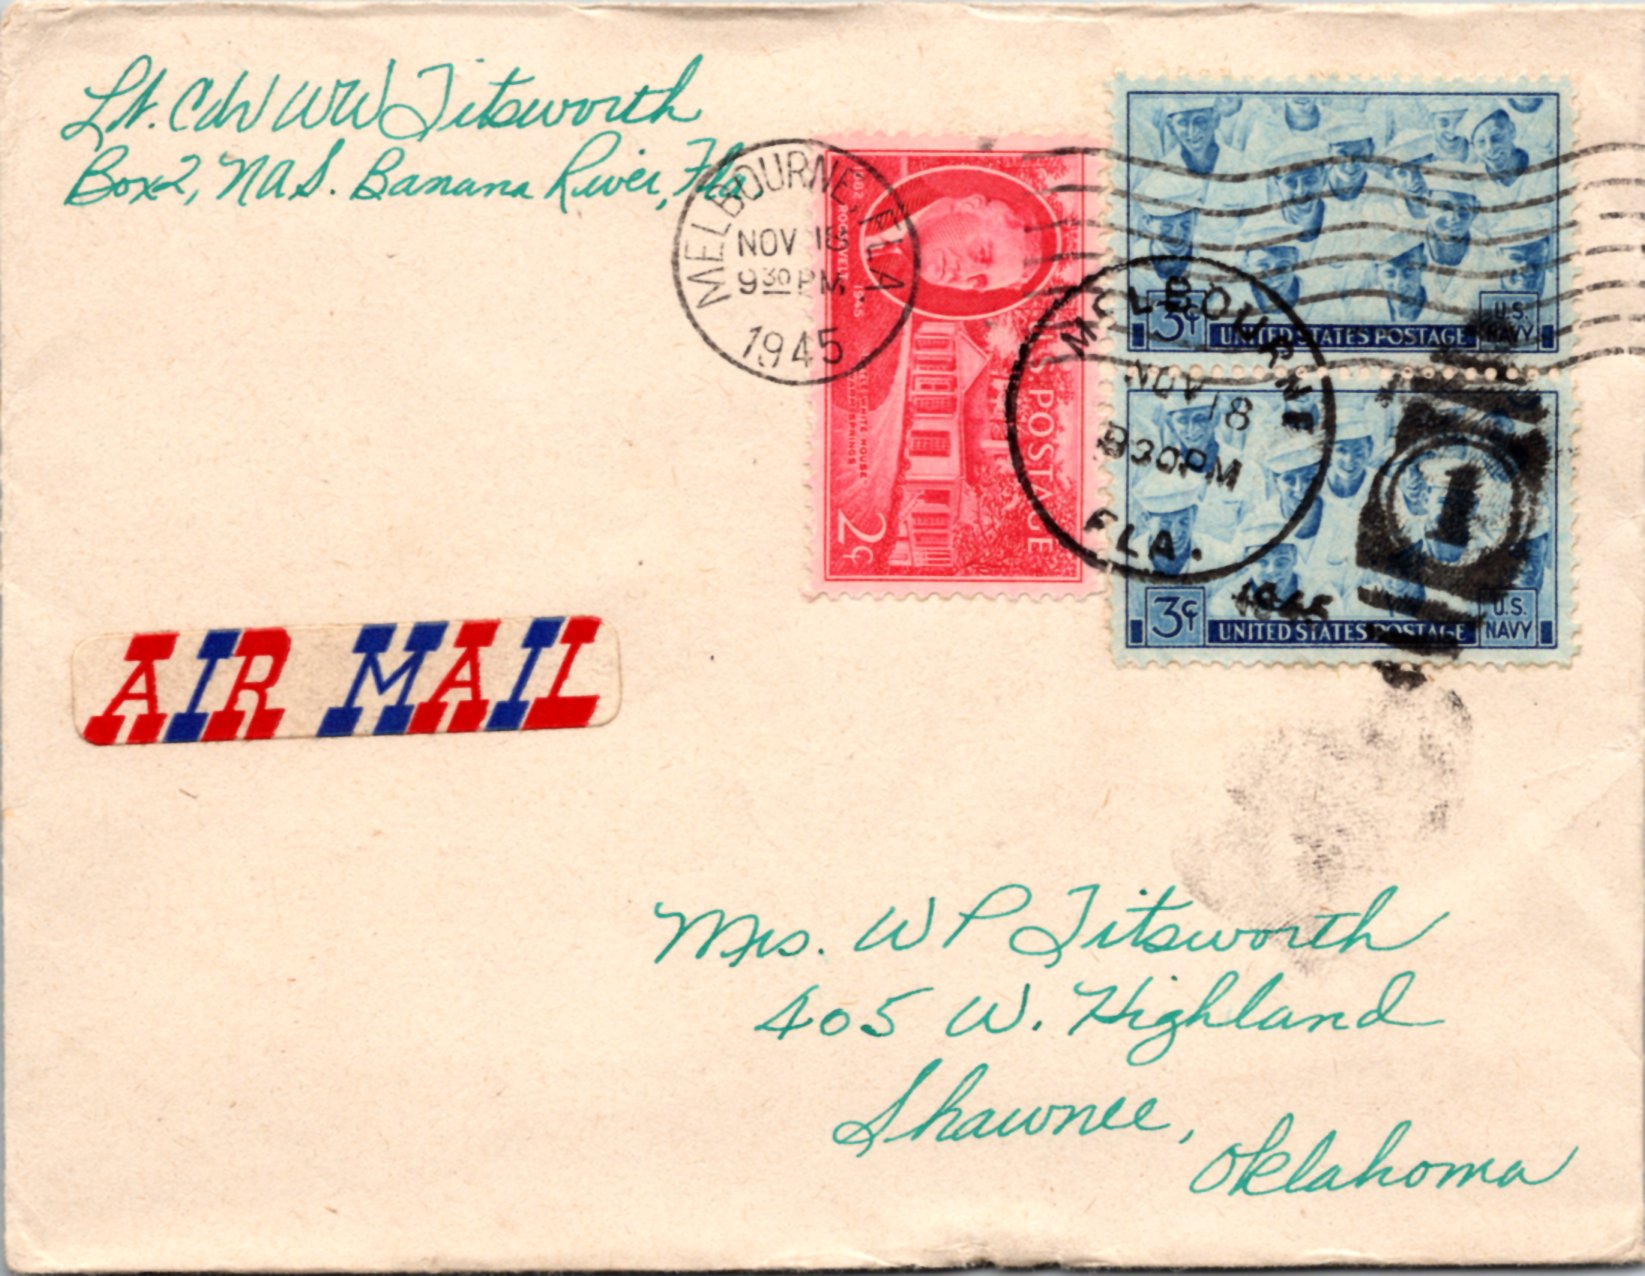 Lt. Cdr WW Titsworth
Box 2, NAS. Banana River, Fla
MELBOURNE, FLA
NOV 18
9 30 PM
1945
ROOSEVELT
1945
LITTLE WHITE HOUSE
WARM SPRINGS
U.S. POSTAGE
2¢
3¢ UNITED STATES POSTAGE U.S. NAVY
MELBOURNE
NOV 18
830PM
FLA.
1945
1
3¢ UNITED STATES POSTAGE U.S. NAVY
AIR MAIL
Mrs. W P Titsworth
405 W. Highland
Shawnee,
Oklahoma